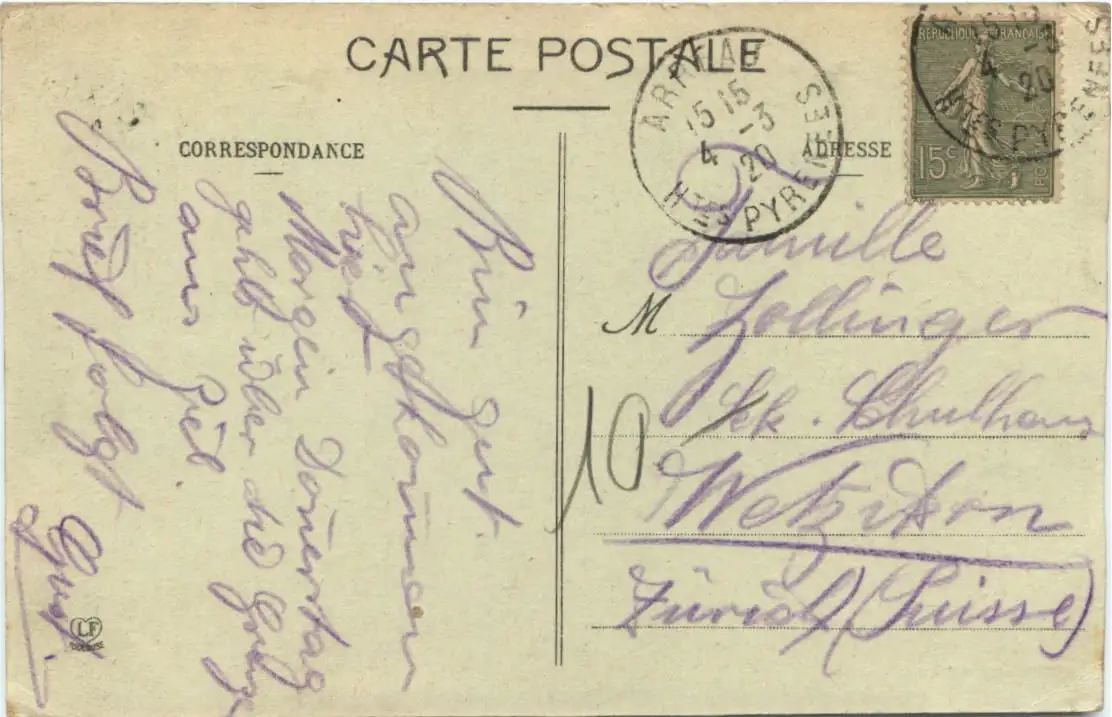 CARTE POSTALE
CORRESPONDANCE
ADRESSE
ARREAU
15 15
4 -3
20
Htes PYRENEES
REPUBLIQUE FRANÇAISE
15c
4
20
Htes PYRENEES
Bin gut
angekommen
hier
Morgen Donerstag
geht über die Grenze
ans Ziel
Brief folgt
Gust
Familie
M Zollinger
Sek. Schulhaus
Wetzikon
Zürich (Suisse)
10
LF
TOULOUSE